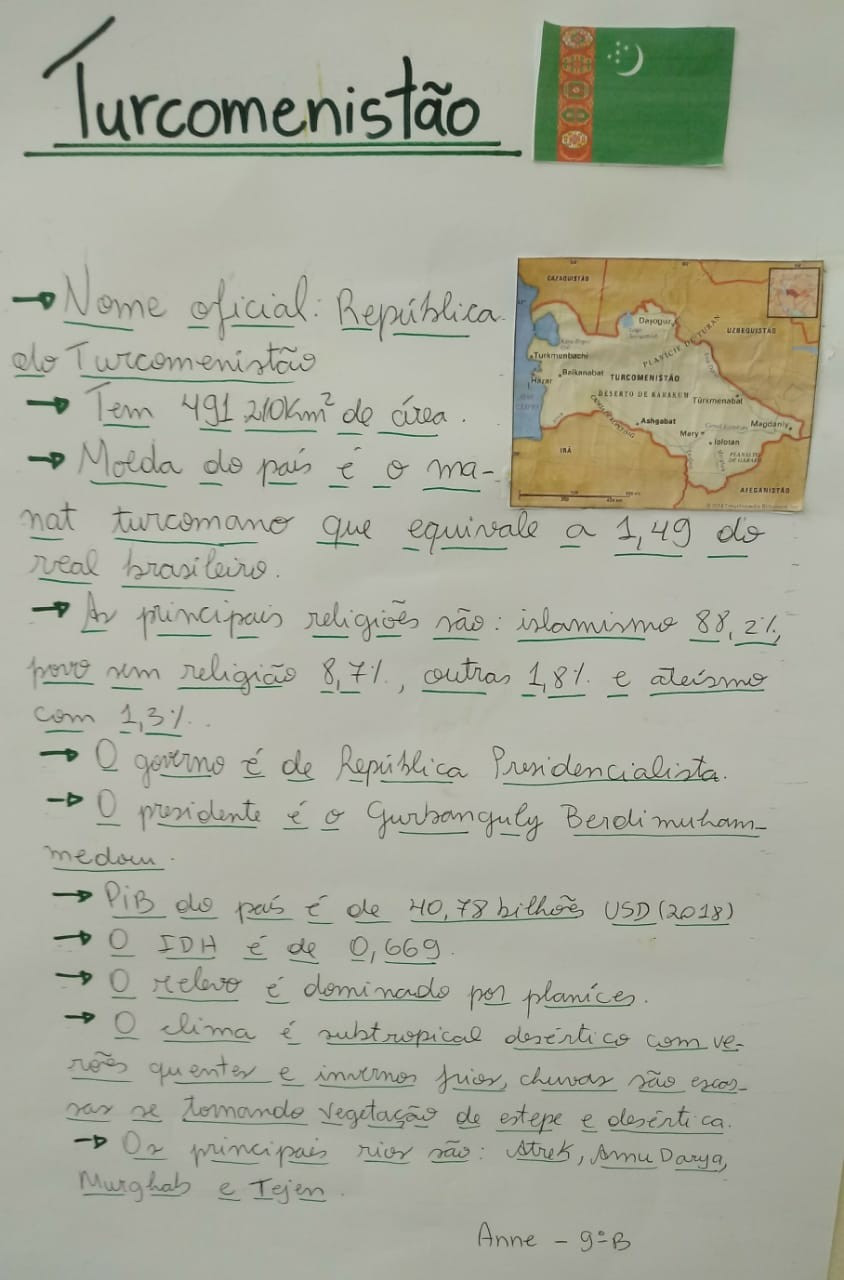 Turcomenistão
→ Nome oficial: República
do Turcomenistão
→ Tem 491 210Km² de área.
→ Moeda do país é o ma-
nat turcomano que equivale a 1,49 do
real brasileiro.
→ As principais religiões são: islamismo 88,2%,
povo sem religião 8,7%, outras 1,8% e ateísmo
com 1,3%.
→ O governo é de República Presidencialista.
→ O presidente é o Gurbanguly Berdimuham-
medow.
→ PiB do país é de 40,78 bilhões USD (2018)
→ O IDH é de 0,669.
→ O relevo é dominado por planíces.
→ O clima é subtropical desértico com ve-
rões quentes e invernos frios, chuvas são escas-
sas se tornando vegetação de estepe e desértica.
→ Os principais rios são: Atrek, Amu Darya,
Murghab e Tejen.
Anne - 9º B
CAZAQUISTÃO
UZBEQUISTÃO
Daşoguz
PLANÍCIE DE TURAN
Turkmenbachi
Balkanabat
Hazar
TURCOMENISTÃO
DESERTO DE KARAKUM
Türkmenabat
Ashgabat
Mary
Magdanly
Iolotan
IRÃ
AFEGANISTÃO